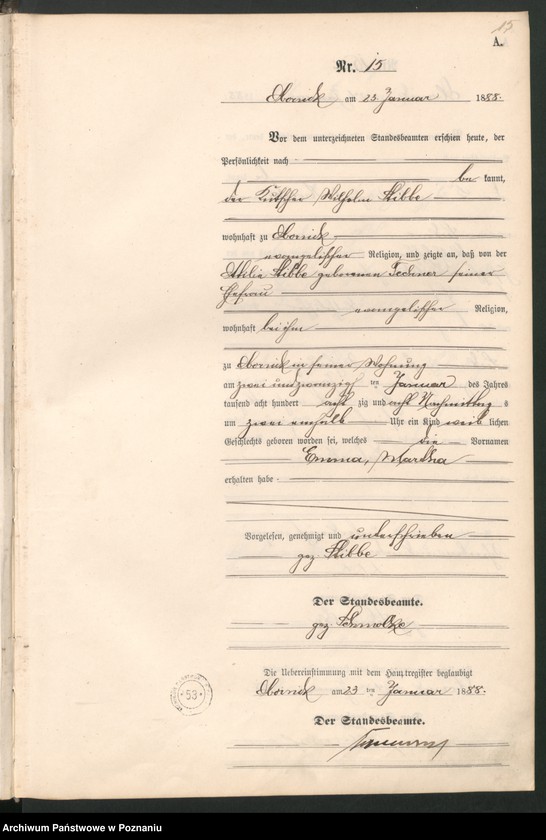 15
A.
Nr. 15
Obornick am 23. Januar 1888.
Vor dem unterzeichneten Standesbeamten erschien heute, der
Persönlichkeit nach
be kannt,
der Kutscher Wilhelm Stibbe
wohnhaft zu Obornick
evangelischer Religion, und zeigte an, daß von der
Ottilie Stibbe geborenen Techner seiner
Ehefrau
evangelischer Religion,
wohnhaft bei ihm
zu Obornick in seiner Wohnung
am zwei und zwanzig ten Januar des Jahres
tausend acht hundert acht zig und acht Nachmittag s
um zwei einhalb Uhr ein Kind weib lichen
Geschlechts geboren worden sei, welches die Vornamen
Emma, Martha
erhalten habe.
Vorgelesen, genehmigt und unterschrieben
gez. Stibbe
Der Standesbeamte.
gez.
Die Uebereinstimmung mit dem Hauptregister beglaubigt
Obornick am 23 ten Januar 1888.
Der Standesbeamte.
53
Archiwum Państwowe w Poznaniu